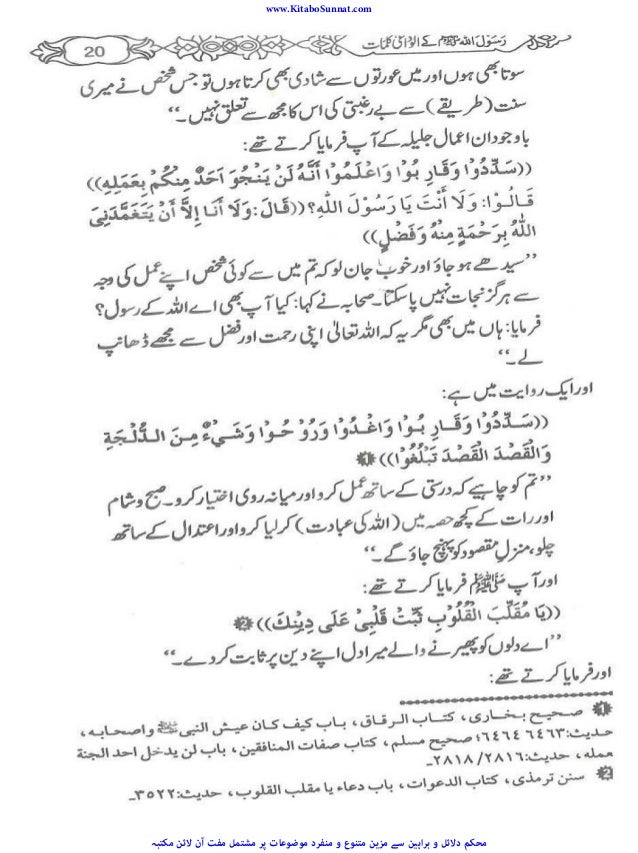 www.KitaboSunnat.com
رسول اللہ ﷺ کے الوداعی کلمات
20
سوتا بھی ہوں اور میں عورتوں سے شادی بھی کرتا ہوں تو جس شخص نے میری
سنت (طریقے) سے بے رغبتی کی اس کا مجھ سے تعلق نہیں۔‘‘
باوجود ان اعمال جلیلہ کے آپ فرمایا کرتے تھے:
((سَدِّدُوْا وَقَارِبُوْا وَاعْلَمُوْا أَنَّهُ لَنْ يَنْجُوَ اَحَدٌ مِنْكُمْ بِعَمَلِهِ))
قَالُوْا: وَلَا أَنْتَ يَا رَسُوْلَ اللّٰهِ؟ ((قَالَ: وَلَا أَنَا إِلَّا أَنْ يَتَغَمَّدَنِيَ
اللّٰهُ بِرَحْمَةٍ مِنْهُ وَفَضْلٍ))
’’سیدھے ہو جاؤ اور خوب جان لو کہ تم میں سے کوئی شخص اپنے عمل کی وجہ
سے ہرگز نجات نہیں پا سکتا۔ صحابہ نے کہا: کیا آپ بھی اے اللہ کے رسول؟
فرمایا: ہاں میں بھی مگر یہ کہ اللہ تعالیٰ اپنی رحمت اور فضل سے مجھے ڈھانپ
لے۔‘‘
اور ایک روایت میں ہے:
((سَدِّدُوْا وَقَارِبُوْا وَاغْدُوْا وَرُوْحُوْا وَشَيْءٌ مِنَ الدُّلْجَةِ
وَالْقَصْدَ الْقَصْدَ تَبْلُغُوْا)) ❶
’’تم کو چاہیے کہ درستی کے ساتھ عمل کرو اور میانہ روی اختیار کرو۔ صبح و شام
اور رات کے کچھ حصہ میں (اللہ کی عبادت) کر لیا کرو اور اعتدال کے ساتھ
چلو، منزل مقصود کو پہنچ جاؤ گے۔‘‘
اور آپ ﷺ فرمایا کرتے تھے:
((يَا مُقَلِّبَ الْقُلُوْبِ ثَبِّتْ قَلْبِيْ عَلَى دِيْنِكَ)) ❷
’’اے دلوں کو پھیرنے والے میرا دل اپنے دین پر ثابت کر دے۔‘‘
اور فرمایا کرتے تھے:
❶ صحیح بخاری، کتاب الرقاق، باب کیف کان عیش النبی ﷺ واصحابہ،
حدیث: ٦٤٦٣ ٦٤٦٤؛ صحیح مسلم، کتاب صفات المنافقین، باب لن یدخل احد الجنة
عملہ، حدیث: ٢٨١٦/٢٨١٨۔
❷ سنن ترمذی، کتاب الدعوات، باب دعاء یا مقلب القلوب، حدیث: ٣٥٢٢۔
محکم دلائل و براہین سے مزین متنوع و منفرد موضوعات پر مشتمل مفت آن لائن مکتبہ